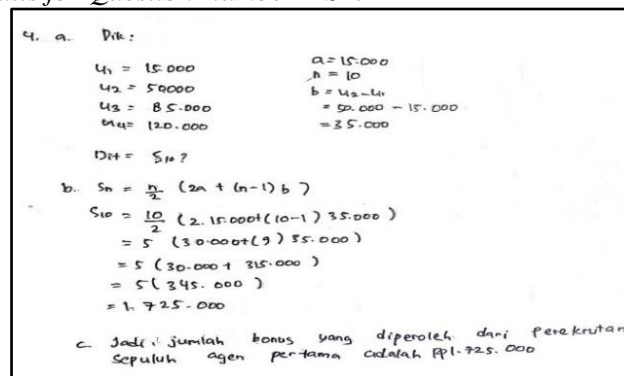 4. a. Dik:
U1 = 15.000
U2 = 50.000
U3 = 85.000
U4 = 120.000
a = 15.000
n = 10
b = U2 - U1
= 50.000 - 15.000
= 35.000
Dit = S10?
b. Sn = n/2 (2a + (n-1) b)
S10 = 10/2 (2. 15.000+(10-1) 35.000)
= 5 (30.000+(9) 35.000)
= 5 (30.000+ 315.000)
= 5 (345.000)
= 1.725.000
c Jadi, jumlah bonus yang diperoleh dari perekrutan
sepuluh agen pertama adalah Rp1.725.000